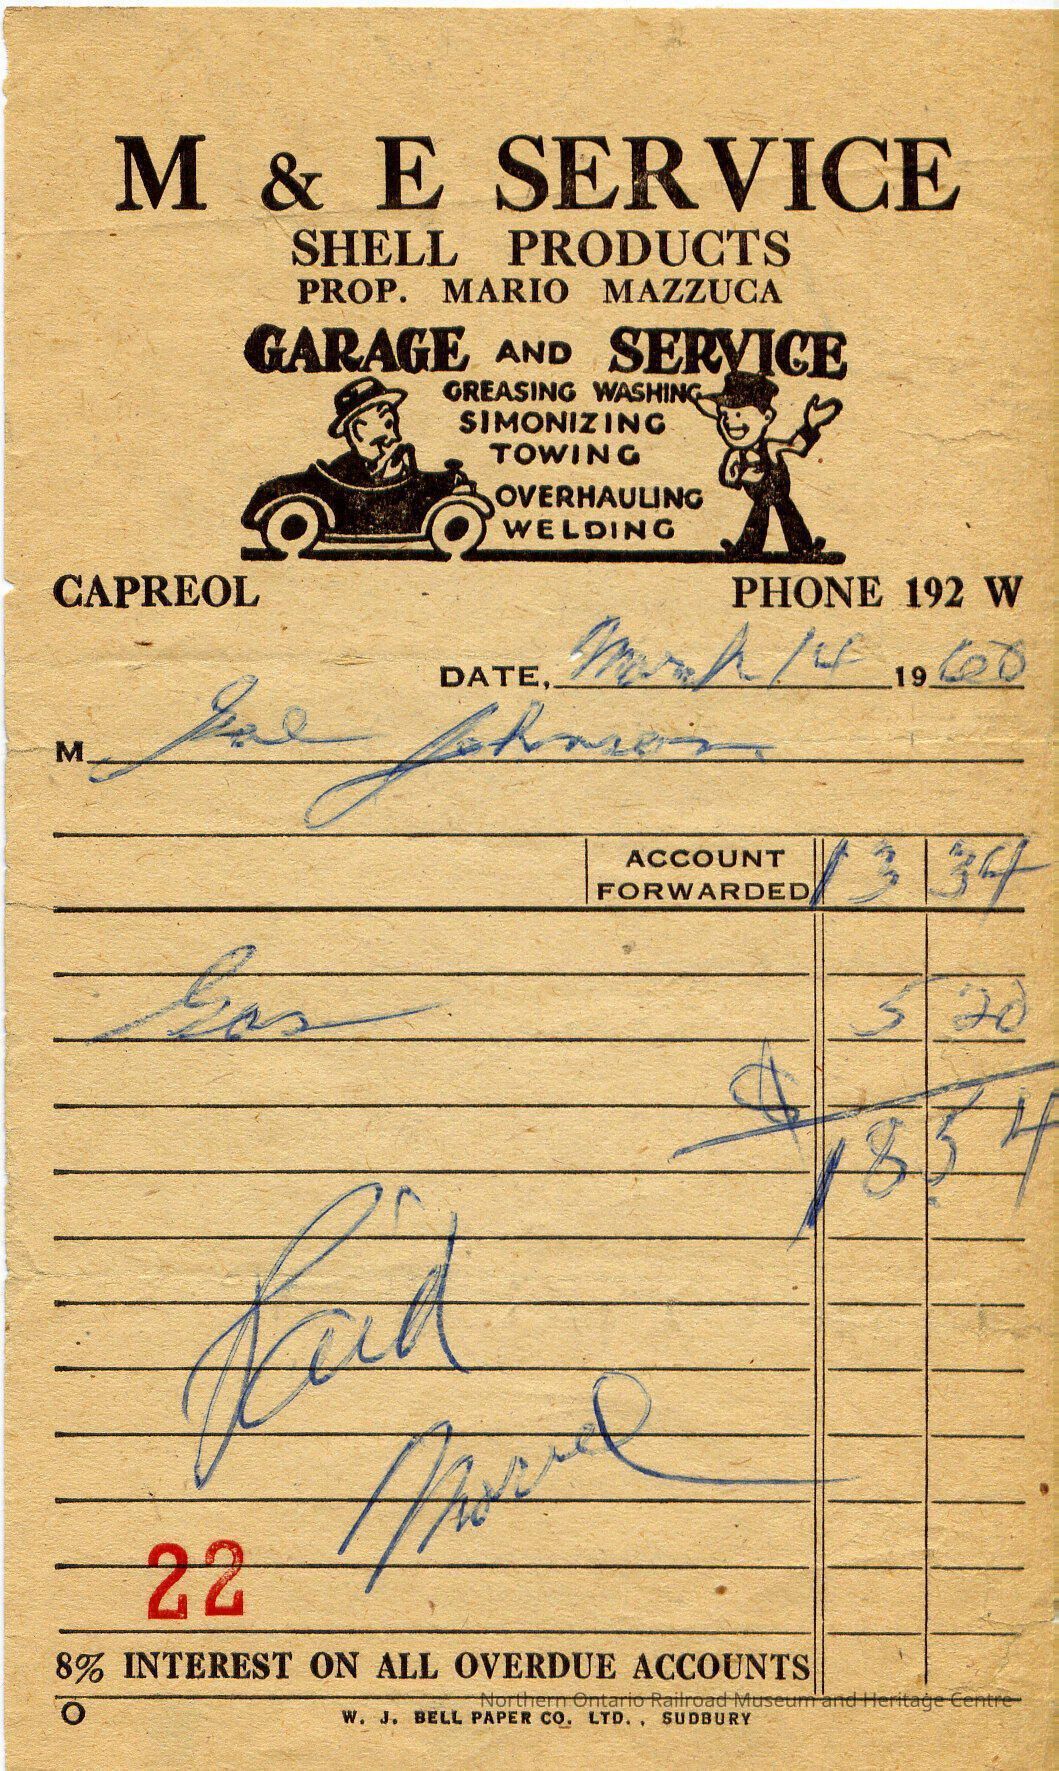 M & E SERVICE
SHELL PRODUCTS
PROP. MARIO MAZZUCA
GARAGE AND SERVICE
GREASING WASHING
SIMONIZING
TOWING
OVERHAULING
WELDING
CAPREOL PHONE 192 W
DATE, March 14 1960
M Joe Johnson
ACCOUNT FORWARDED 13 34
Gas 5 20
$ 18 54
Paid
22
8% INTEREST ON ALL OVERDUE ACCOUNTS
Northern Ontario Railroad Museum and Heritage Centre
O W. J. BELL PAPER CO. LTD., SUDBURY